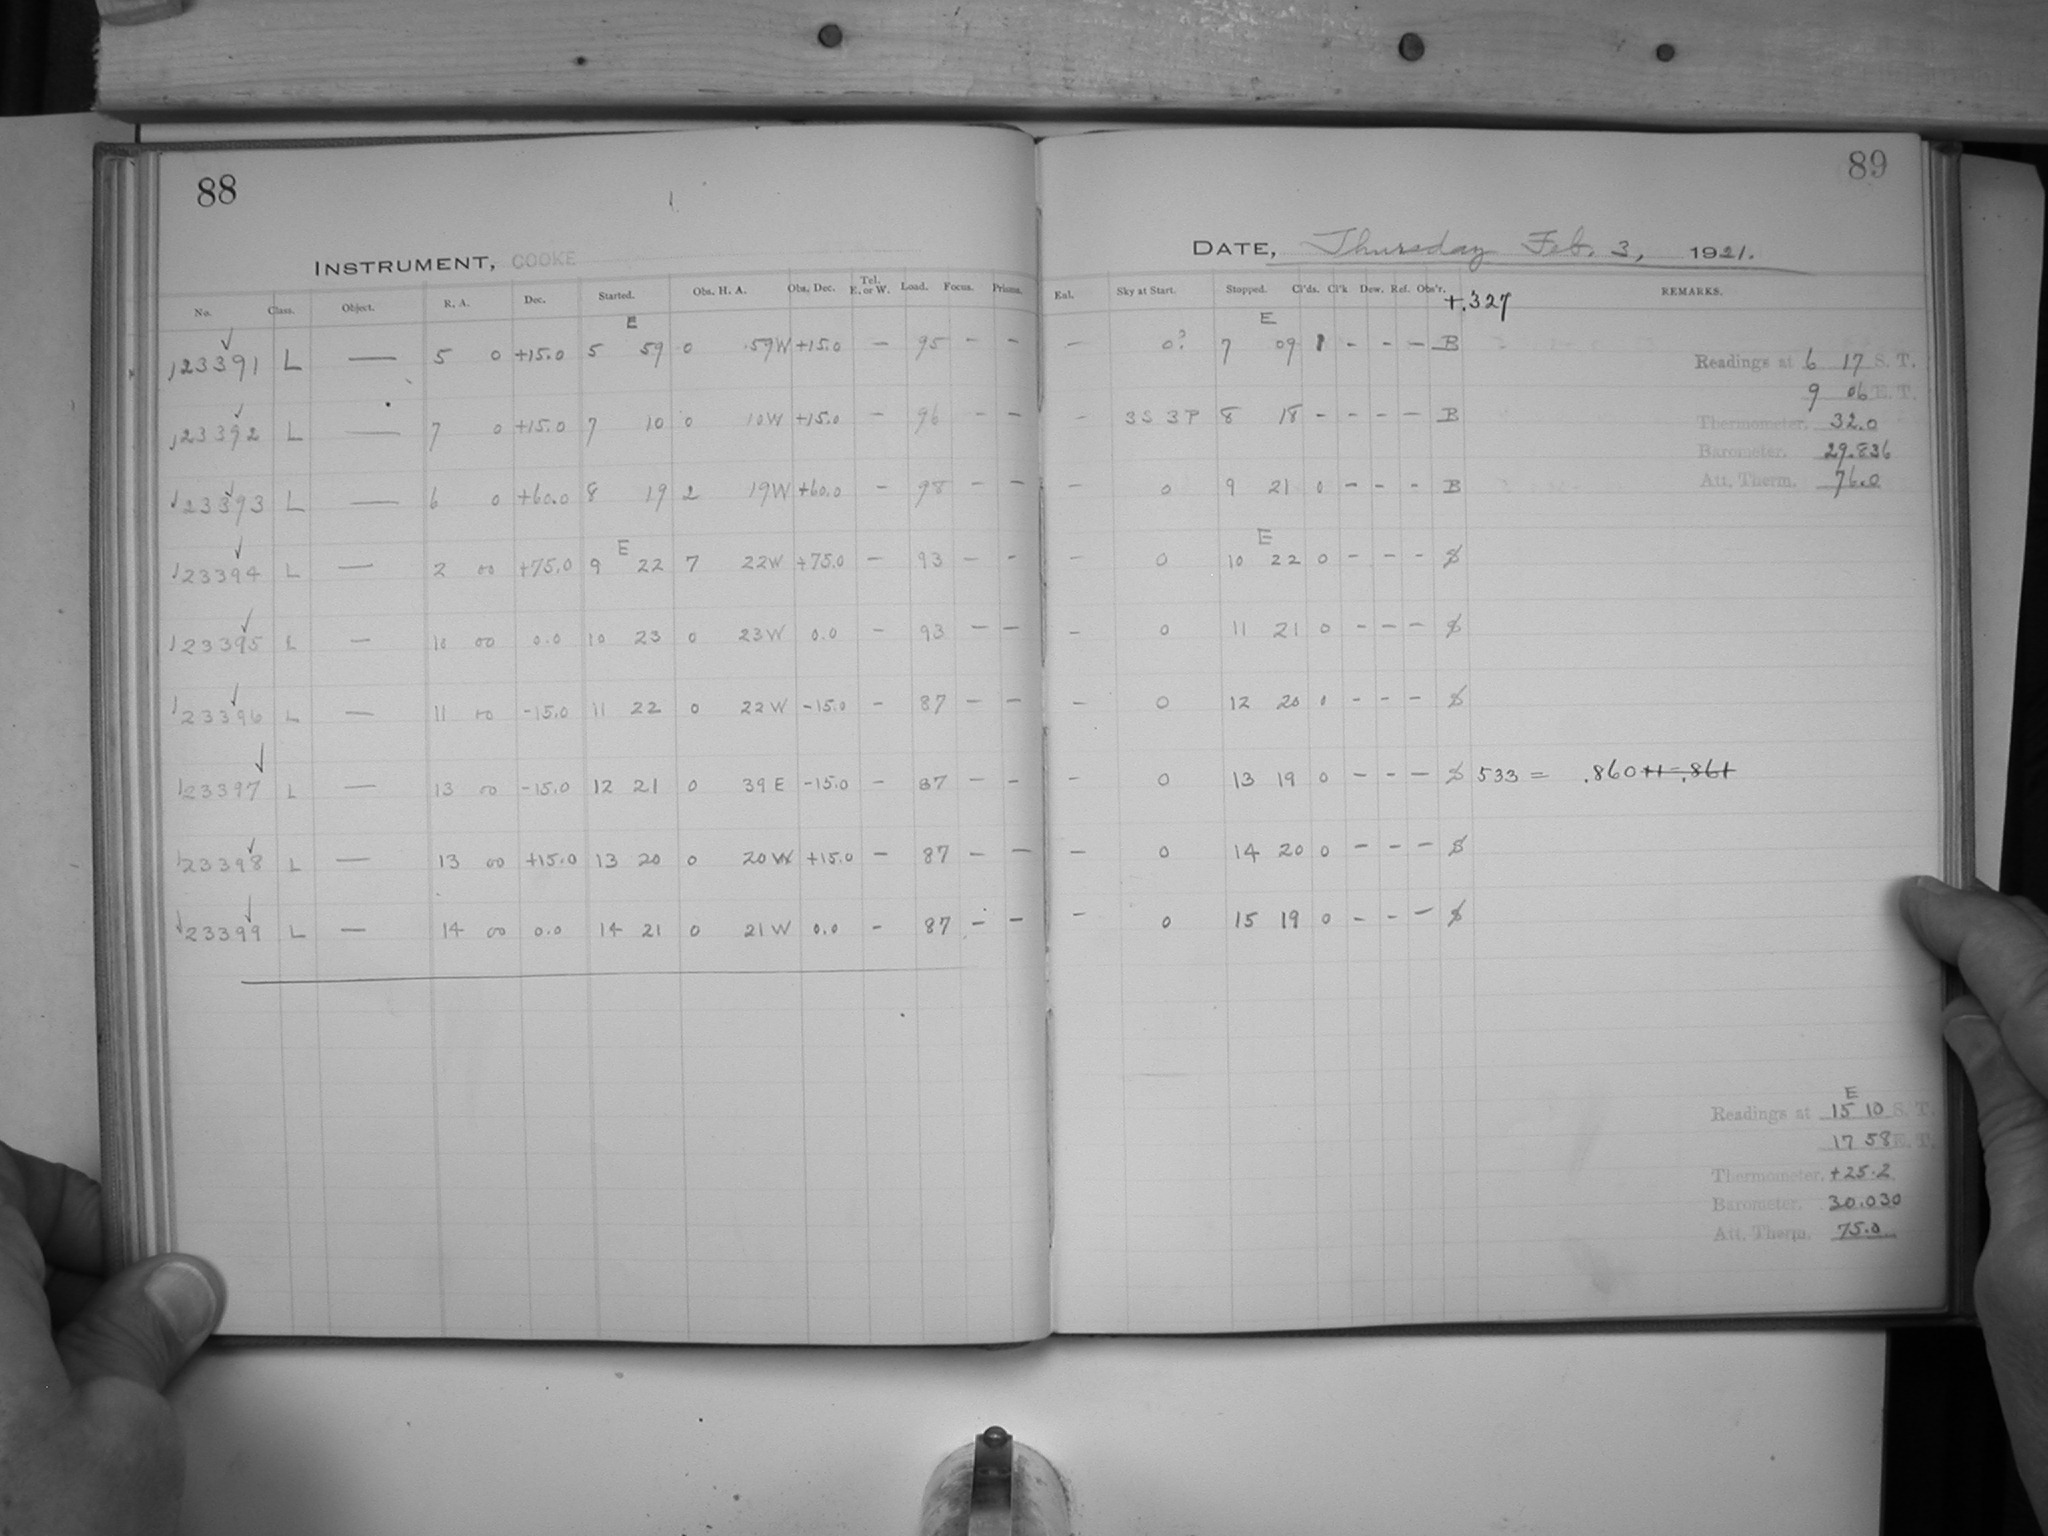 88
INSTRUMENT, COOKE
No. Class. Object. R. A. Dec. Started. Obs. H. A. Obs. Dec. Tel. E. or W. Load. Focus. Prisms.
E
123391 L — 5 0 +15.0 5 59 0 59W +15.0 — 95 — —
123392 L — 7 0 +15.0 7 10 0 10W +15.0 — 96 — —
123393 L — 6 0 +60.0 8 19 2 19W +60.0 — 98 — —
E
123394 L — 2 00 +75.0 9 22 7 22W +75.0 — 93 — —
123395 L — 10 00 0.0 10 23 0 23W 0.0 — 93 — —
123396 L — 11 00 -15.0 11 22 0 22W -15.0 — 87 — —
123397 L — 13 00 -15.0 12 21 0 39E -15.0 — 87 — —
123398 L — 13 00 +15.0 13 20 0 20W +15.0 — 87 — —
123399 L — 14 00 0.0 14 21 0 21W 0.0 — 87 — —
89
DATE, Thursday Feb. 3, 1921.
Eal. Sky at Start. Stopped. Cl'ds. Cl'k Dew. Ref. Obs'r. REMARKS.
+.327
E
— 0? 7 09 1 - - — B
— 3S 3P 8 18 - - - — B
— 0 9 21 0 - - - B
E
— 0 10 22 0 - - - $
— 0 11 21 0 - - - $
— 0 12 20 0 - - - $
— 0 13 19 0 - - - $ 533 = .860+1=.861
— 0 14 20 0 - - - $
— 0 15 19 0 - - - $
Readings at 6 17 S. T.
9 06 E. T.
Thermometer, 32.0
Barometer, 29.836
Att. Therm. 76.0
E
Readings at 15 10 S. T.
17 58 E. T.
Thermometer, +25.2
Barometer, 30.030
Att. Therm. 75.0